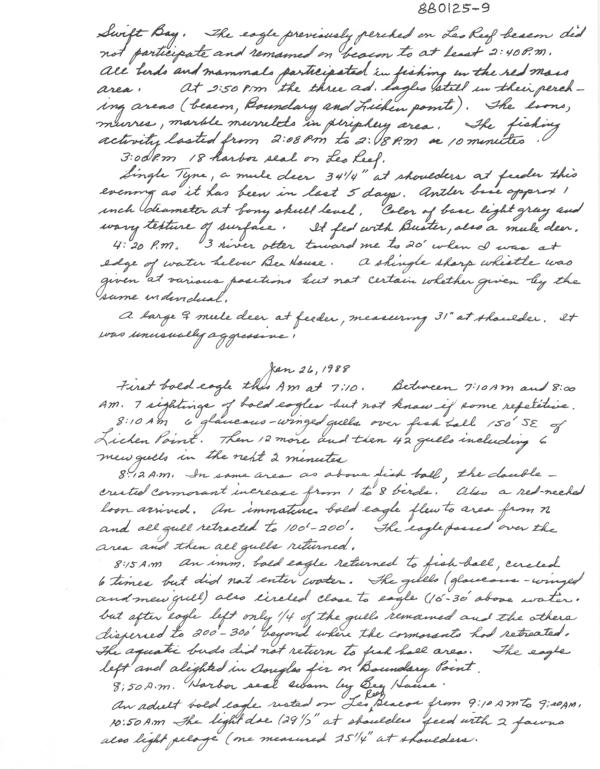 880125-9
Swift Bay. The eagle previously perched on Leo Reef beacon did
not participate and remained on beacon to at least 2:40 P.M.
All birds and mammals participated in fishing in the red mass
area. At 2:50 PM the three ad. eagles still in their perch-
ing areas (beacon, Boundary and Lichen points). The loons,
murres, marble murrelets in periphery area. The fishing
activity lasted from 2:08 PM to 2:18 P.M. or 10 minutes.
3:00 P.M 18 harbor seal on Leo Reef.
Single Tyne, a mule deer 34 1/4" at shoulders at feeder this
evening as it has been in last 5 days. Antler base approx 1
inch diameter at bony skull level. Color of base light gray and
wavy texture of surface. It fed with Buster, also a mule deer.
4:20 P.M. 3 river otter toward me to 20' when I was at
edge of water below Bee House. A shingle sharp whistle was
given at various positions but not certain whether given by the
same individual.
A large ♀ mule deer at feeder, measuring 31" at shoulder. It
was unusually aggressive!
Jan 26, 1988
First bald eagle this AM at 7:10. Between 7:10 AM and 8:00
AM. 7 sightings of bald eagles but not know if some repetitive.
8:10 AM 6 glaucous-winged gulls over fish ball 150' SE of
Lichen Point. Then 12 more and then 42 gulls including 6
mew gulls in the next 2 minutes
8:12 A.M. In same area as above fish ball, the double-
crested cormorant increase from 1 to 8 birds. Also a red-necked
loon arrived. An immature bald eagle flew to area from N
and all gull retracted to 100'-200'. The eagle passed over the
area and then all gulls returned.
8:15 A.M An imm. bald eagle returned to fish-ball, circled
6 times but did not enter water. The gulls (glaucous-winged
and mew gull) also circled close to eagle (15'-30' above water.
but after eagle left only 1/4 of the gulls remained and the others
dispersed to 200'-300' beyond where the cormorants had retreated.
The aquatic birds did not return to fish ball area. The eagle
left and alighted in Douglas fir on Boundary Point.
8:50 A.M. Harbor seal swam by Bee House.
An adult bald eagle rested on Leo Reef Beacon from 9:10 AM to 9:20 AM.
10:50 AM The light doe (29 1/2" at shoulders feed with 2 fawns
also light pelage (one measured 25 1/4" at shoulders.